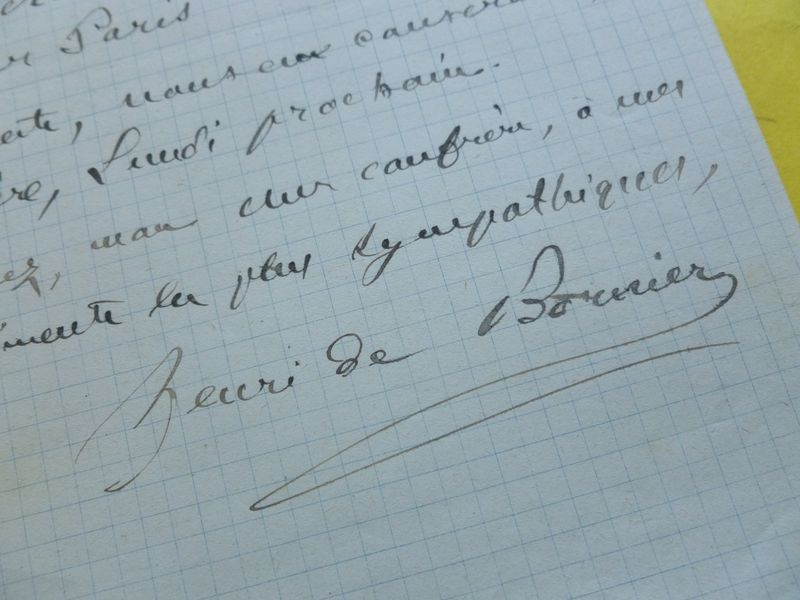 Paris
nous en causerons
Lundi prochain.
mon cher confrère, à mes
les plus sympathiques,
Henri de Bornier